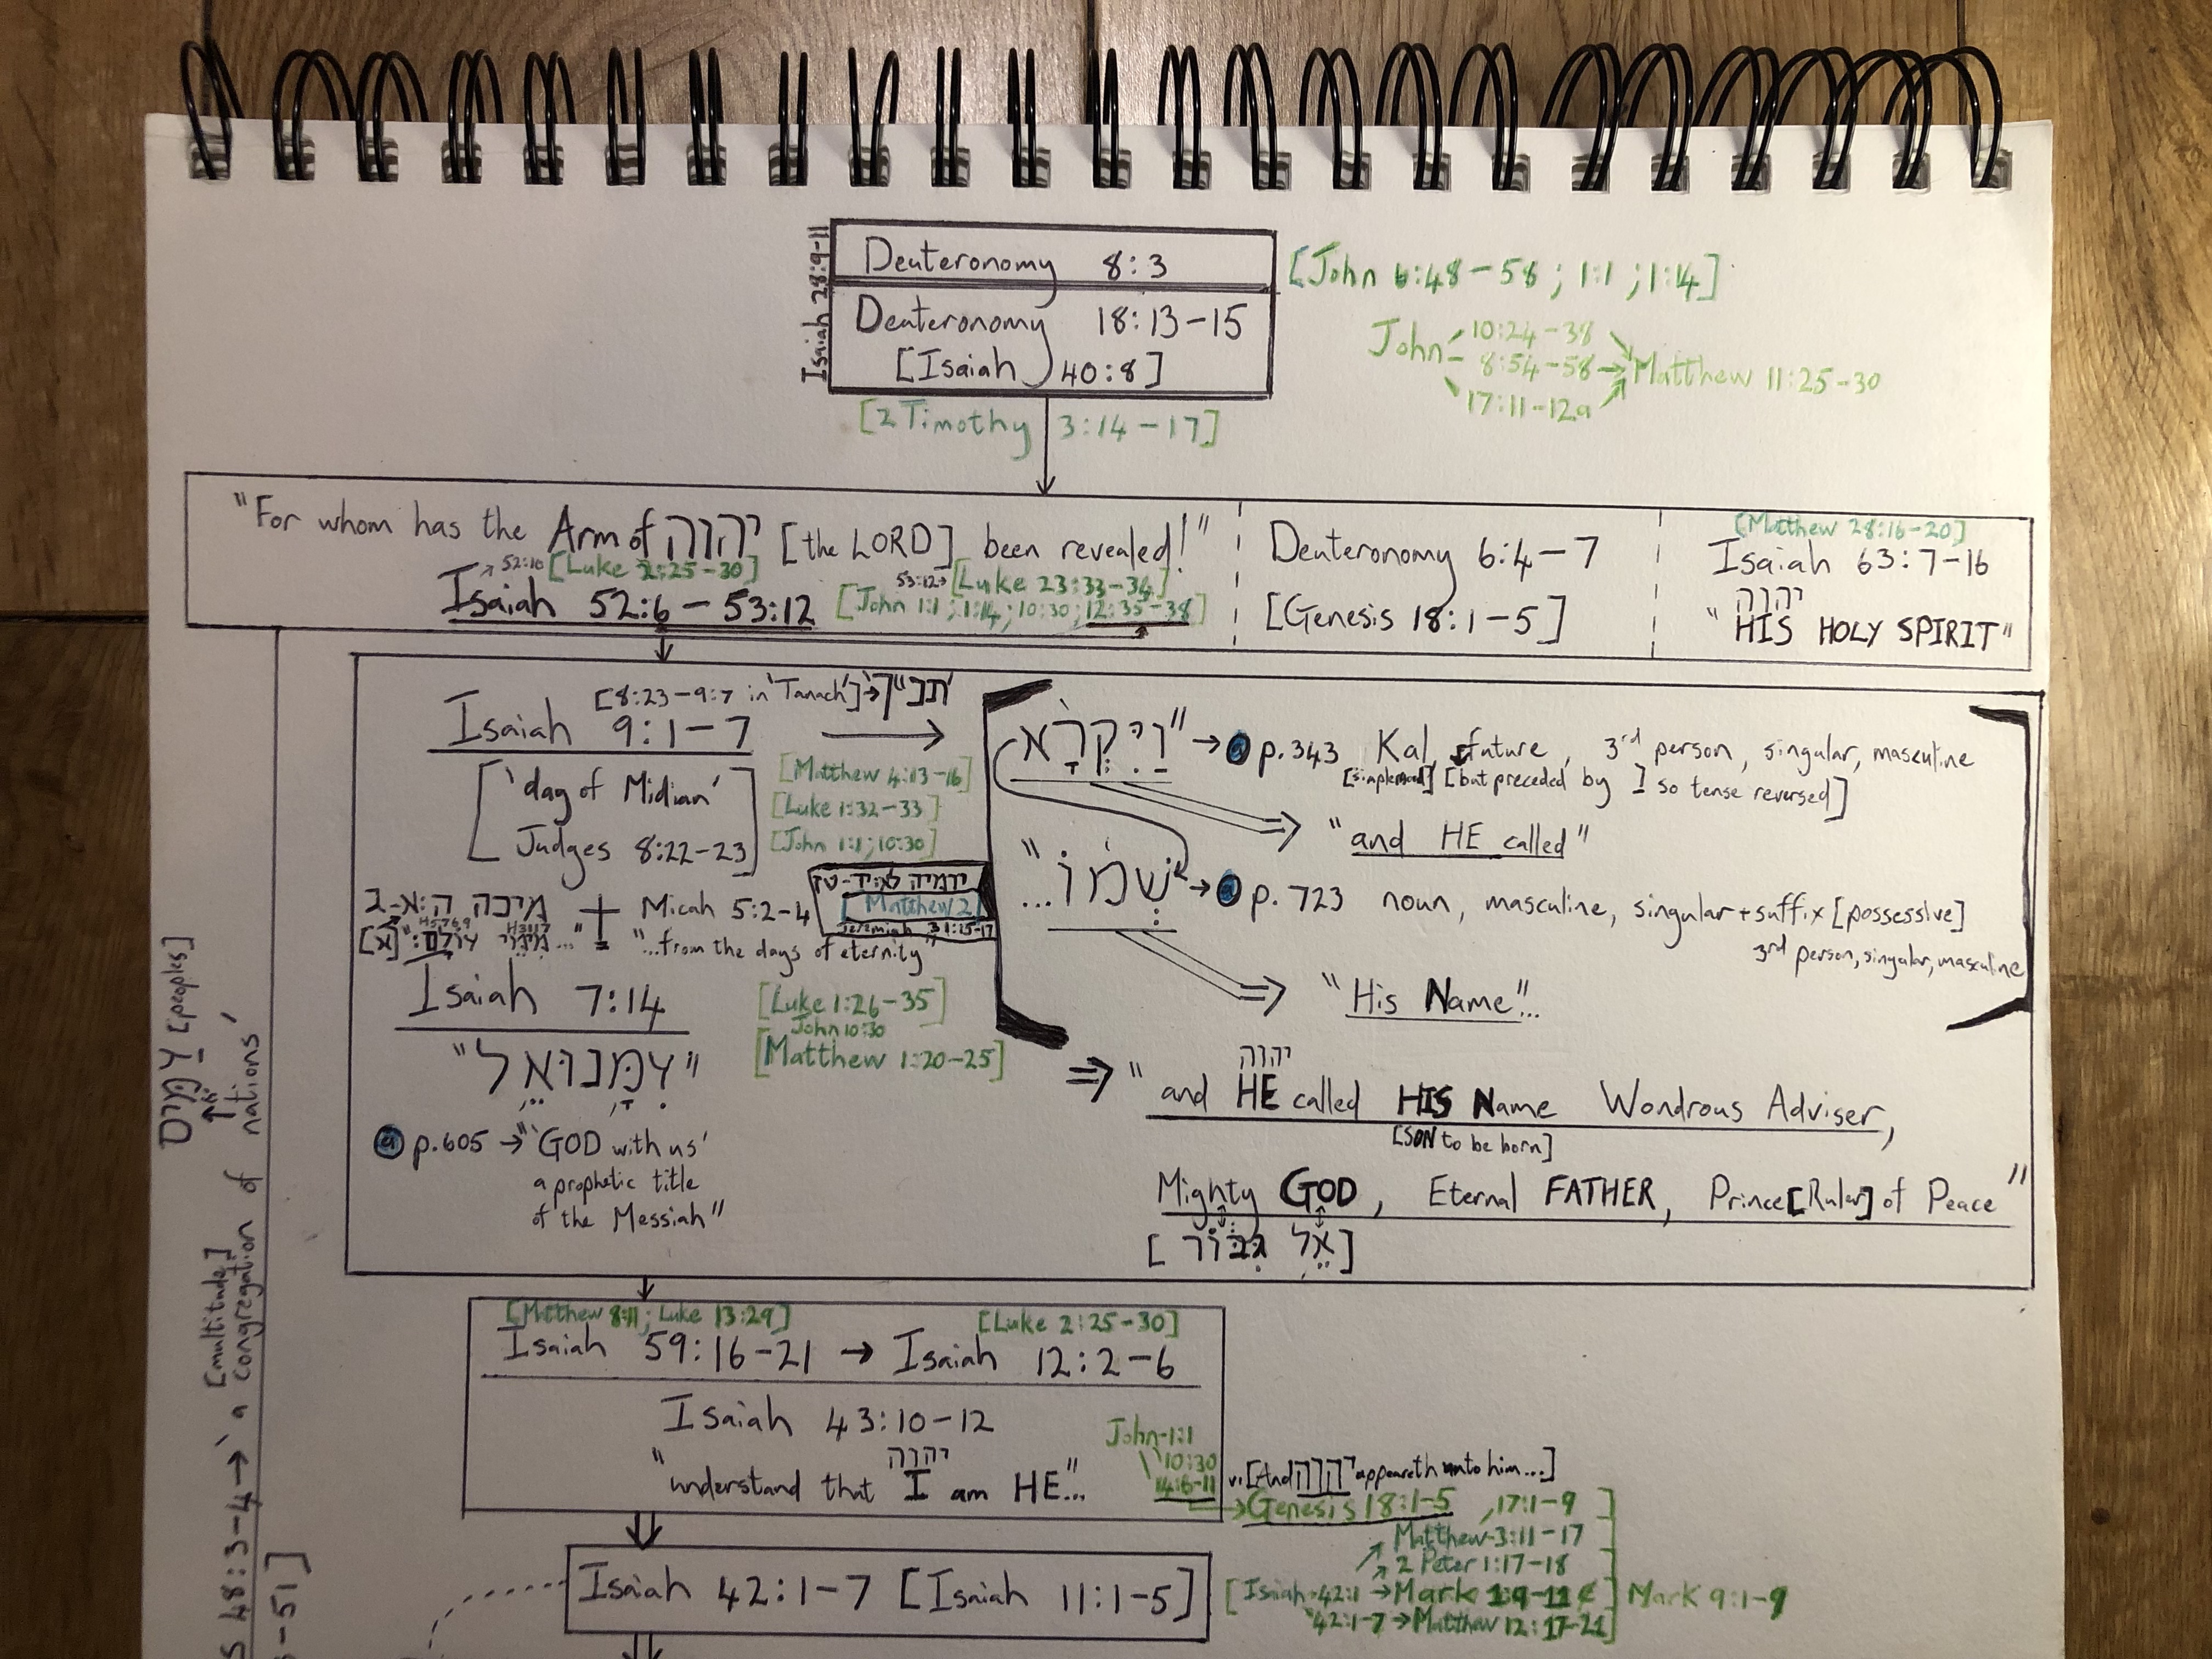 Isaiah 28:9-11
Deuteronomy 8:3
Deuteronomy 18:13-15
[Isaiah 40:8]
[John 6:48-58; 1:1; 1:14]
John
10:24-38
8:54-58 → Matthew 11:25-30
17:11-12a
[2 Timothy 3:14-17]
"For whom has the Arm of יהוה [the LORD] been revealed!"
52:10 [Luke 2:25-30]
53:12→ [Luke 23:33-34]
Isaiah 52:6-53:12 [John 1:1; 1:14; 10:30; 12:35-38]
Deuteronomy 6:4-7
[Genesis 18:1-5]
[Matthew 28:16-20]
Isaiah 63:7-16
יהוה
"HIS HOLY SPIRIT"
[8:23-9:7 in 'Tanach'] → תנ"ך
Isaiah 9:1-7
['day of Midian'
Judges 8:22-23]
[Matthew 4:13-16]
[Luke 1:32-33]
[John 1:1; 10:30]
מיכה ה:א-ג + Micah 5:2-4
"...from the days of eternity"
[Matthew 2]
Jeremiah 31:15-17
Isaiah 7:14
[Luke 1:26-35]
John 10:30
[Matthew 1:20-25]
"עִמָּנוּאֵל"
@ p.605 → "'GOD with us'
a prophetic title
of the Messiah"
וַיִּקְרָא" → @ p.343 Kal, future, 3rd person, singular, masculine
[simple mood] [but preceded by ו so tense reversed]
"and HE called"
"שְׁמוֹ... → @ p.723 noun, masculine, singular + suffix [possessive]
3rd person, singular, masculine
"His Name"...
יהוה
⇒ "and HE called HIS Name Wondrous Adviser,
[SON to be born]
Mighty GOD, Eternal FATHER, Prince [Ruler] of Peace"
[אֵל גִּבּוֹר]
[Matthew 8:11; Luke 13:29] [Luke 2:25-30]
Isaiah 59:16-21 → Isaiah 12:2-6
Isaiah 43:10-12
יהוה
"understand that I am HE..."
John 1:1
10:30
14:6-11
v.1 [And יהוה appeareth unto him...]
Genesis 18:1-5, 17:1-9]
Matthew 3:11-17
2 Peter 1:17-18
Isaiah 42:1-7 [Isaiah 11:1-5]
[Isaiah 42:1 → Mark 1:9-11] Mark 9:1-9
42:1-7 → Matthew 12:17-21]
עַמִּים [peoples]
[multitude]
48:3-4 → 'a congregation of nations'
-51]